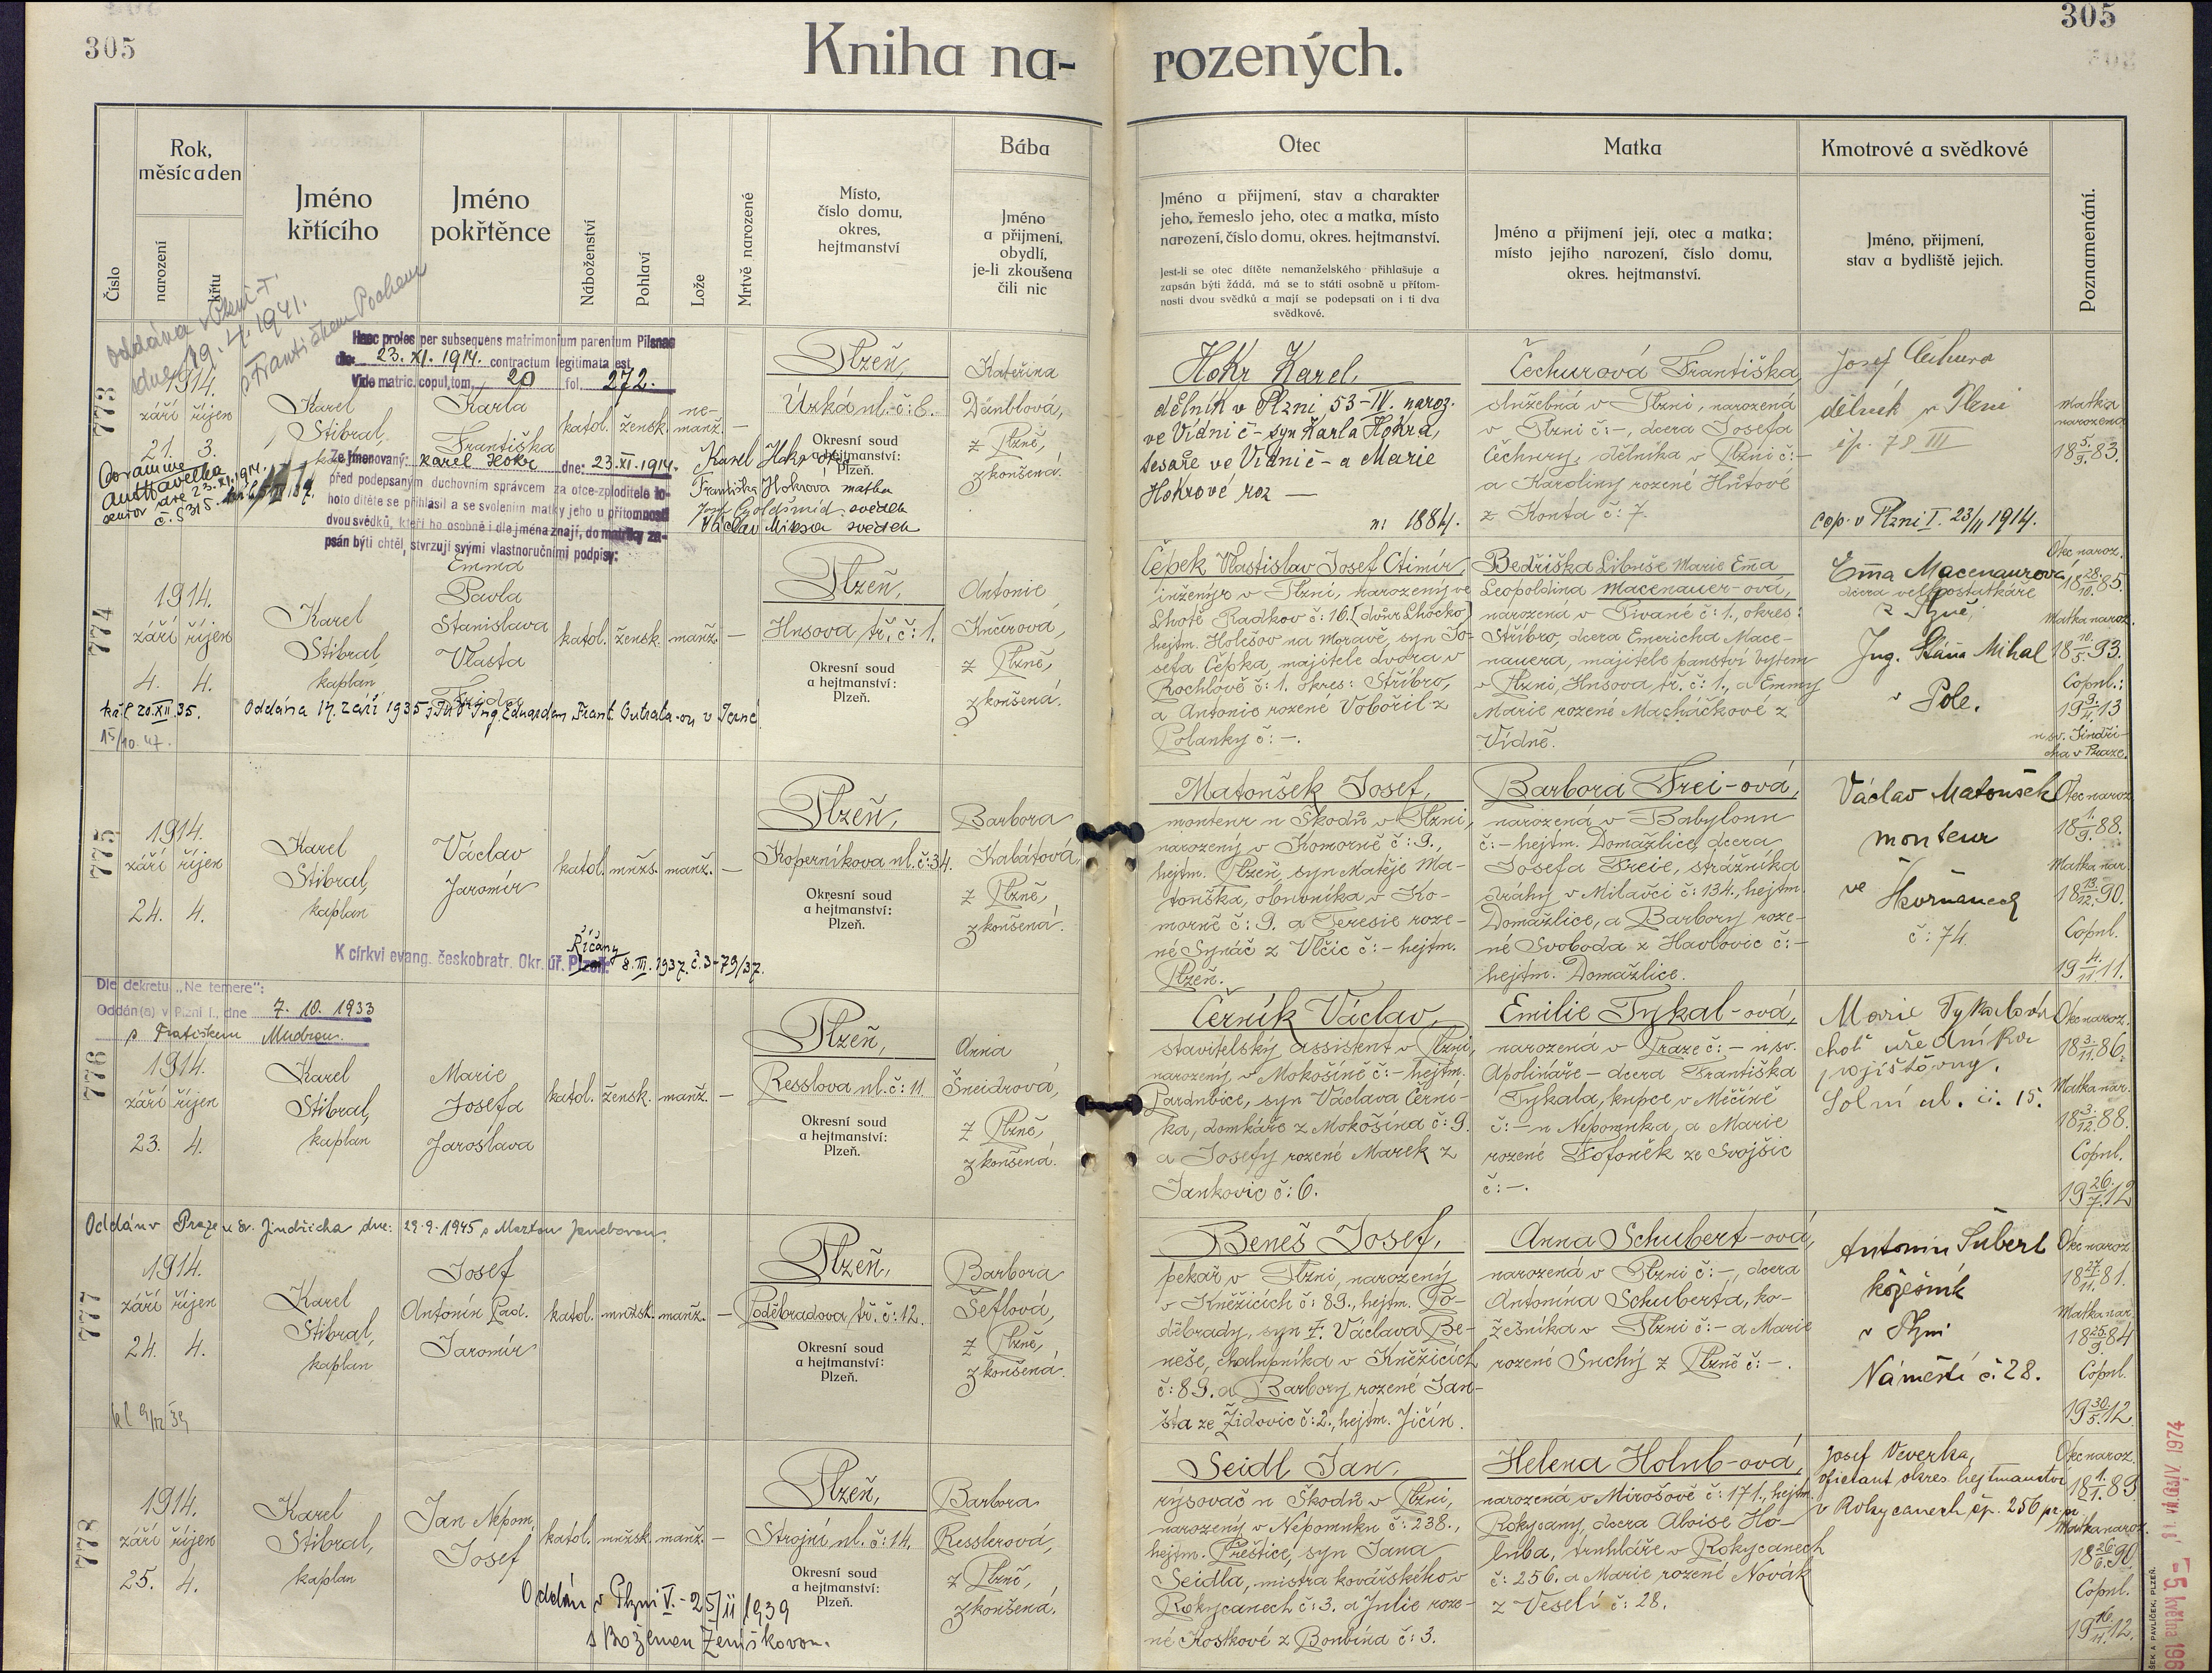 305
305
Kniha na-
rozených.
Číslo
Rok,
měsíc a den
narození
křtu
Jméno
křtícího
Jméno
pokřtěnce
Náboženství
Pohlaví
Lože
Mrtvě narozené
Místo,
číslo domu,
okres,
hejtmanství
Bába
Jméno
a přijmení,
obydlí,
je-li zkoušena
čili nic
Otec
Jméno a přijmení, stav a charakter
jeho, řemeslo jeho, otec a matka, místo
narození, číslo domu, okres. hejtmanství.
Jest-li se otec dítěte nemanželského přihlašuje a
zapsán býti žádá, má se to státi osobně u přítom-
nosti dvou svědků a mají se podepsati on i ti dva
svědkové.
Matka
Jméno a přijmení její, otec a matka;
místo jejího narození, číslo domu,
okres. hejtmanství.
Kmotrové a svědkové
Jméno, přijmení,
stav a bydliště jejich.
Poznamenání.
Oddána v Plzni-I.
dne 19. 4. 1941.
s Františkem Pochem
Haec proles per subsequens matrimonium parentum Pilsnae
die 23. XI. 1914. contractum legitimata est.
Vide matric. copul. tom. 20 fol. 272.
773
1914.
září říjen
21. 3.
Karel
Stibral,
Karla
Františka
katol.
žensk.
ne-
manž.
—
Plzeň,
Úzká ul. č: 6.
Okresní soud
a hejtmanství:
Plzeň.
Kateřina
Dänblová,
z Plzně,
zkoušená.
Ze jmenovaný: Karel Hokr dne: 23. XI. 1914.
před podepsaným duchovním správcem za otce-zploditele to-
hoto dítěte se přihlásil a se svolením matky jeho u přítomnosti
dvou svědků, kteří ho osobně i dle jména znají, do matriky za-
psán býti chtěl, stvrzují svými vlastnoručními podpisy:
Karel Hokr otec
Františka Hokrová matka
Josef Goldšmíd svědek
Václav Miksa svědek
Hokr Karel,
dělník v Plzni, 53-IV. naroz.
ve Vídni č - syn Karla Hokra,
tesaře ve Vídni č - a Marie
Hokrové roz —
n: 1884.
Čechurová Františka,
služebná v Plzni, narozená
v Plzni č: -, dcera Josefa
Čechury, dělníka v Plzni č: -
a Karoliny rozené Hůtové
z Konta č: 7.
Josef Čechura
dělník v Plzni
čp. 78 III
cop. v Plzni I. 23/11 1914.
Matka
narozena
18 5/9. 83.
774
1914.
září říjen
4. 4.
Karel
Stibral,
kaplan
Emma
Pavla
Stanislava
Vlasta
Frida
katol.
žensk.
manž.
—
Plzeň,
Husova tř. č: 1.
Okresní soud
a hejtmanství:
Plzeň.
Antonie
Kučerová,
z Plzně,
zkoušená.
kř. l. 20. XII 35.
Oddána 17. září 1935 s Ing. Eduardem Frant. Outrata-ou v
15/10. 47.
Čepek Vlastislav Josef Otimír,
inženýr v Plzni, narozený ve
Lhotě Radkov č: 16. [dvůr Lhocko]
hejtm. Holešov na Moravě, syn Jo-
sefa Čepka, majitele dvora v
Rochlově č: 1. okres: Stříbro,
a Antonie rozené Vobořil z
Polanky č: -.
Bedřiška Libuše Marie Ema
Leopoldina Macenauer-ová,
narozená v Pivaně č: 1., okres:
Stříbro, dcera Emericha Mace-
nauera, majitele panství bytem
v Plzni, Husova tř. č: 1., a Emmy
Marie rozené Macháčkové z
Vídně.
Ema Macenaurová
dcera velkostatkáře
z Plzně,
Ing. Stáňa Mihal
v Pole.
Otec naroz.
18 28/10. 85.
Matka naroz.
18 10/5. 93.
Copul.:
19 3/4. 13
u sv. Jindři-
cha v Praze.
775
1914.
září říjen
24. 4.
Karel
Stibral,
kaplan
Václav
Jaromír
katol.
mužs.
manž.
—
Plzeň,
Koperníkova ul. č: 34.
Okresní soud
a hejtmanství:
Plzeň.
Barbora
Kabátová,
z Plzně,
zkoušená.
K církvi evang. českobratr. Okr. úř. Plzeň Říčany 8. III. 1937. č. 3-79/37.
Matoušek Josef,
monteur u Škodů v Plzni,
narozený v Komorně č: 9.,
hejtm. Plzeň, syn Matěje Ma-
touška, obuvníka v Ko-
morně č: 9. a Teresie roze-
né Synáč z Vlčic č: - hejtm.
Plzeň.
Barbora Frei-ová,
narozená v Babylonu
č: - hejtm. Domažlice, dcera
Josefa Freie, strážníka
dráhy v Milavči č: 134., hejtm.
Domažlice, a Barbory roze-
né Svoboda z Havlovic č: -
hejtm. Domažlice.
Václav Matoušek
monteur
ve
č: 74
Otec naroz.
18 1/9. 88.
Matka nar.
18 13/12. 90.
Copul.
19 4/11. 11.
Dle dekretu „Ne temere":
Oddán(a) v Plzni I., dne 7. 10. 1933
s Fratiškem Mudrou.
776
1914.
září říjen
23. 4.
Karel
Stibral,
kaplan
Marie
Josefa
Jaroslava
katol.
žensk.
manž.
—
Plzeň,
Resslova ul. č: 11
Okresní soud
a hejtmanství:
Plzeň.
Anna
Šneidrová,
z Plzně,
zkoušená.
Černík Václav,
stavitelský assistent v Plzni,
narozený v Mokošíně č: - hejtm.
Pardubice, syn Václava Černí-
ka, domkáře z Mokošína č: 9.
a Josefy rozené Marek z
Jankovic č: 6.
Emilie Tykal-ová,
narozená v Praze č: - u sv.
Apolináře - dcera Františka
Tykala, kupce v Měčíně
č: - u Nepomuka, a Marie
rozené Fofoněk ze Svojšic
č: -.
Marie Tykalová
choť úředníka
pojišťovny,
Solní ul. č. 15.
Otec naroz.
18 3/11. 86.
Matka nar.
18 3/12. 88.
Copul.
19 26/7. 12
Oddán v Praze u sv. Jindřicha dne: 29. 9. 1945 s Martou
777
1914.
září říjen
24. 4.
Karel
Stibral,
kaplan
Josef
Antonín Pad.
Jaromír
katol.
mužsk.
manž.
—
Plzeň,
Poděbradova tř. č: 12.
Okresní soud
a hejtmanství:
Plzeň.
Barbora
Šeflová,
z Plzně,
zkoušená.
Beneš Josef,
pekař v Plzni, narozený
v Kněžicích č: 89., hejtm. Po-
děbrady, syn Ɨ. Václava Be-
neše, chalupníka v Kněžicích
č: 89. a Barbory rozené Jan-
šta ze Židovic č: 2., hejtm. Jičín.
Anna Schubert-ová,
narozená v Plzni č: -, dcera
Antonína Schuberta, ko-
žešníka v Plzni č: - a Marie
rozené Suchý z Plzně č: -.
Antonín Šubert
kožešník
v Plzni
Náměstí č. 28.
Otec naroz.
18 27/11. 81.
Matka nar.
18 25/9. 84
Copul.
19 30/5. 12.
778
1914.
září říjen
25. 4.
Karel
Stibral,
kaplan
Jan Nepom.
Josef
katol.
mužsk.
manž.
—
Plzeň,
Strojní ul. č: 14.
Okresní soud
a hejtmanství:
Plzeň.
Barbora
Resslerová,
z Plzně,
zkoušená.
Oddán v Plzni V. - 25/II 1939
s Boženou Zemiškovou.
Seidl Jan,
rýsovač u Škodů v Plzni,
narozený v Nepomuku č: 238.,
hejtm. Přeštice, syn Jana
Seidla, mistra kovářského v
Rokycanech č: 3. a Julie roze-
né Kostkové z Bonbína č: 3.
Helena Holub-ová,
narozená v Mirošově č: 171., hejtm.
Rokycany, dcera Aloise Ho-
luba, truhláře v Rokycanech
č: 256. a Marie rozené Novák
z Veselí č: 28.
Josef Veverka,
oficiant okres. hejtmanství
v Rokycanech čp. 256
Otec naroz.
18 1/1. 89
Matka naroz.
18 26/6. 90
Copul.
19 16/11. 12.
- 5. května 196